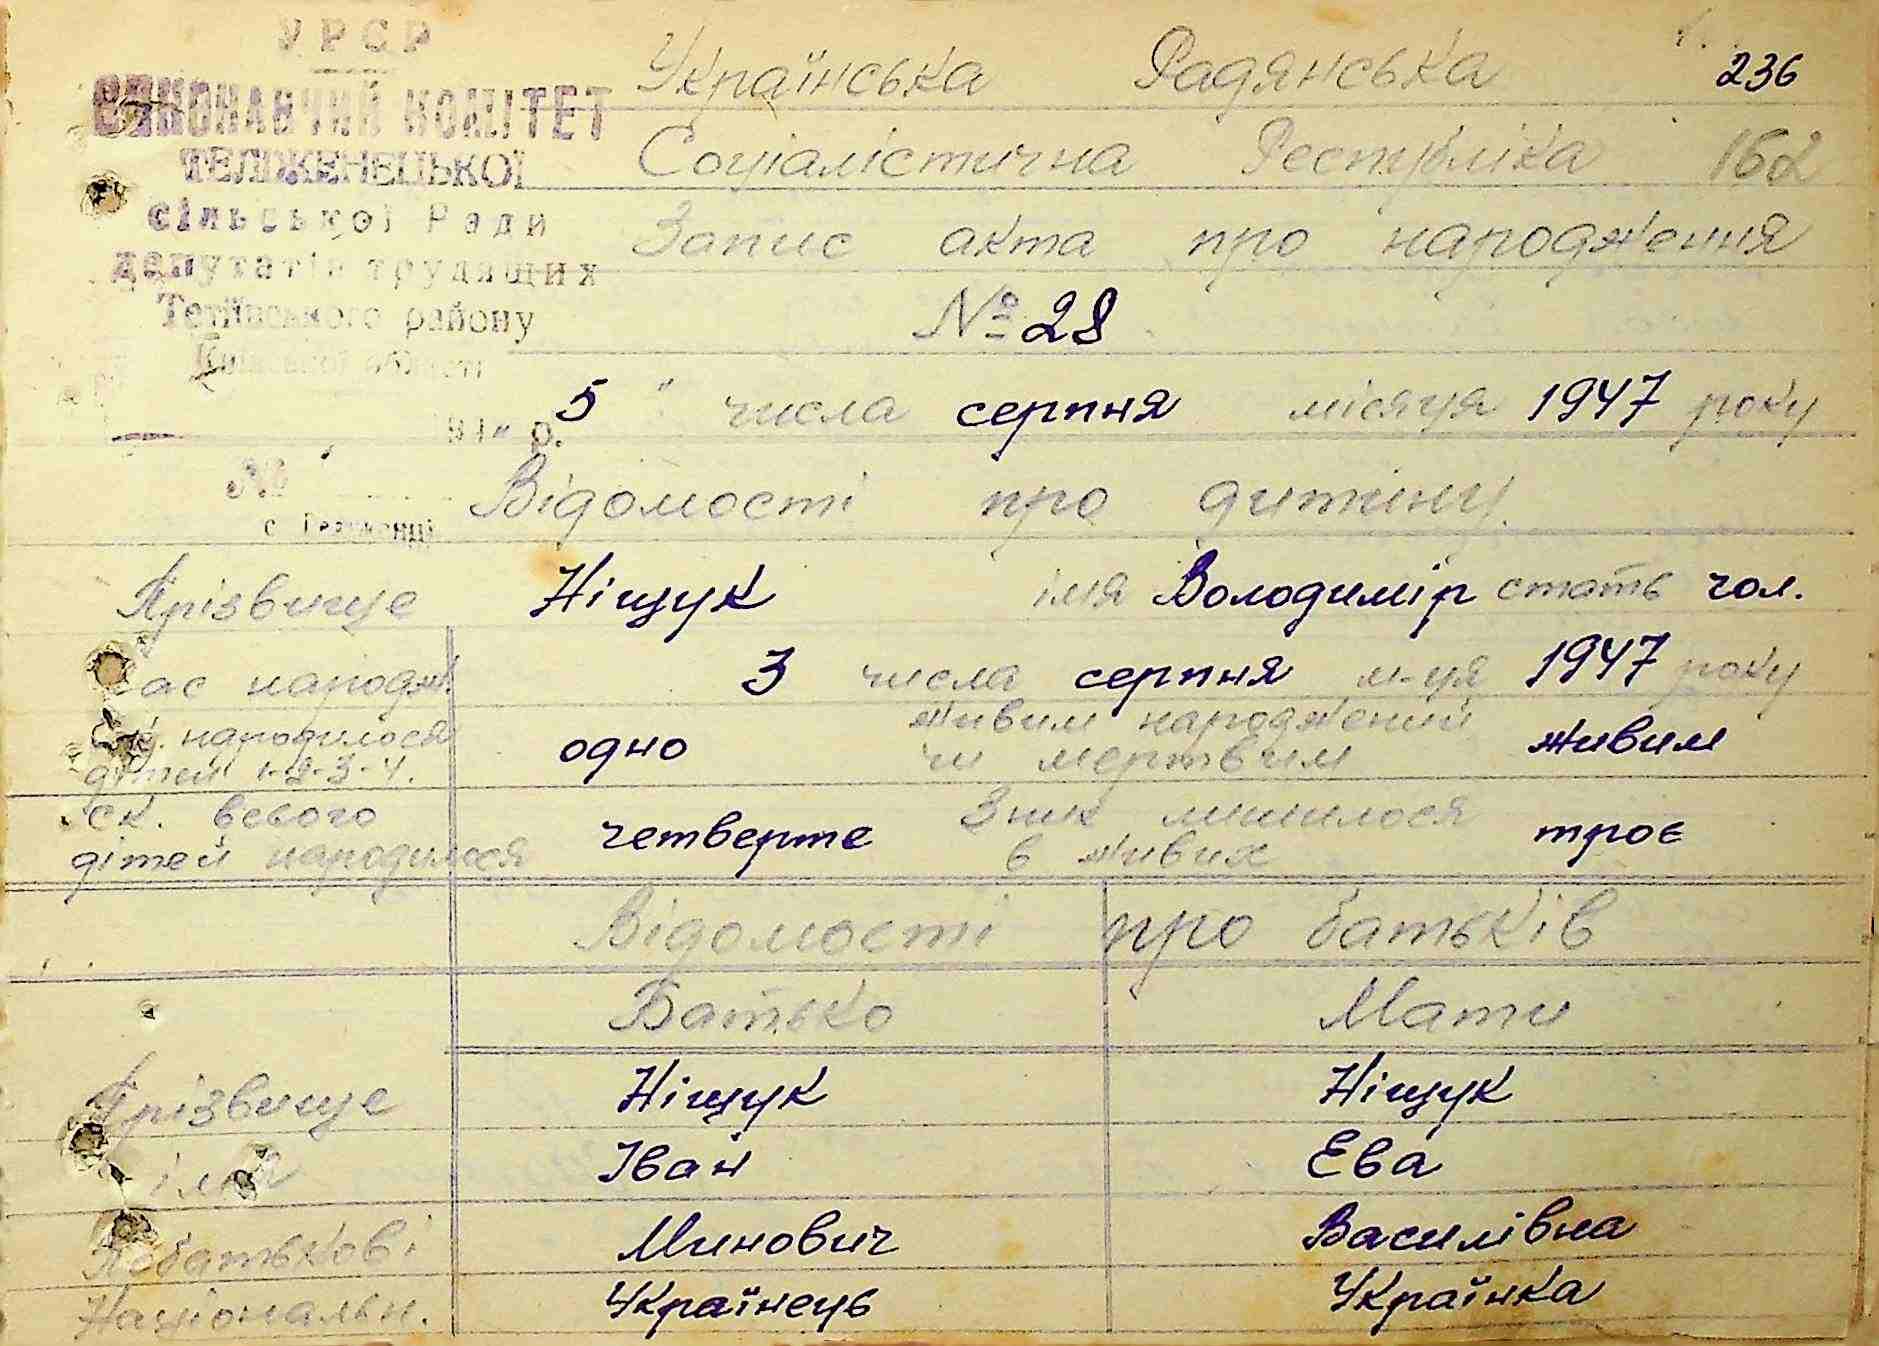 УРСР
ВИКОНАВЧИЙ КОМІТЕТ
ТЕЛІЖЕНЕЦЬКОЇ
сільської Ради
депутатів трудящих
Тетіївського району
Київської області
194 р.
№
с. Теліженці
236
Українська Радянська
Соціалістична Республіка 162
Запис акта про народження
№ 28
5 " числа серпня місяця 1947 року
Відомості про дитину
Прізвище Ніщук імя Володимір стать чол.
Час народж. 3 числа серпня м-ця 1947 року
Ск. народилося дітей 1-2-3-4. одно живим народжений чи мертвим живим
Ск. всього дітей народилося четверте З них лишилося в живих троє
Відомості про батьків
Батько Мати
Прізвище Ніщук Ніщук
імя Іван Ева
Побатькові Минович Василівна
Національн. Українець Українка